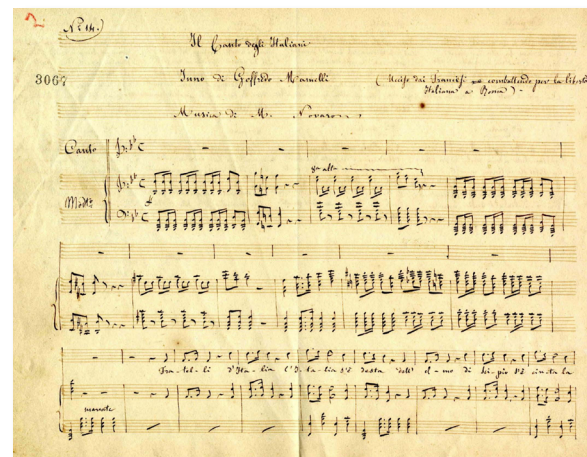 2.
N.º 14.
Il Canto degli Italiani
3067
Inno di Goffredo Mamelli
(Ucciso dai Francesi combattendo per la libertà
Italiana a Roma)
Musica di M. Novaro
Canto
8a alta
Fra-tel-li d'Ita-lia l'I-ta-lia s'è desta dell' el-mo di Sci-pio s'è cin-ta la
marcato